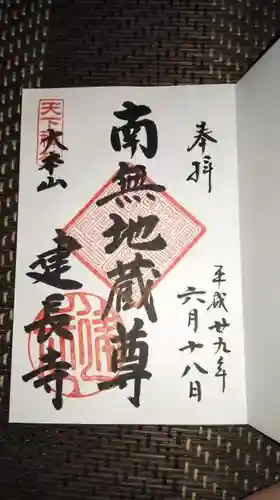 奉拝
平成廿九年
六月十八日
南無地蔵尊
天下
大本山
建長寺